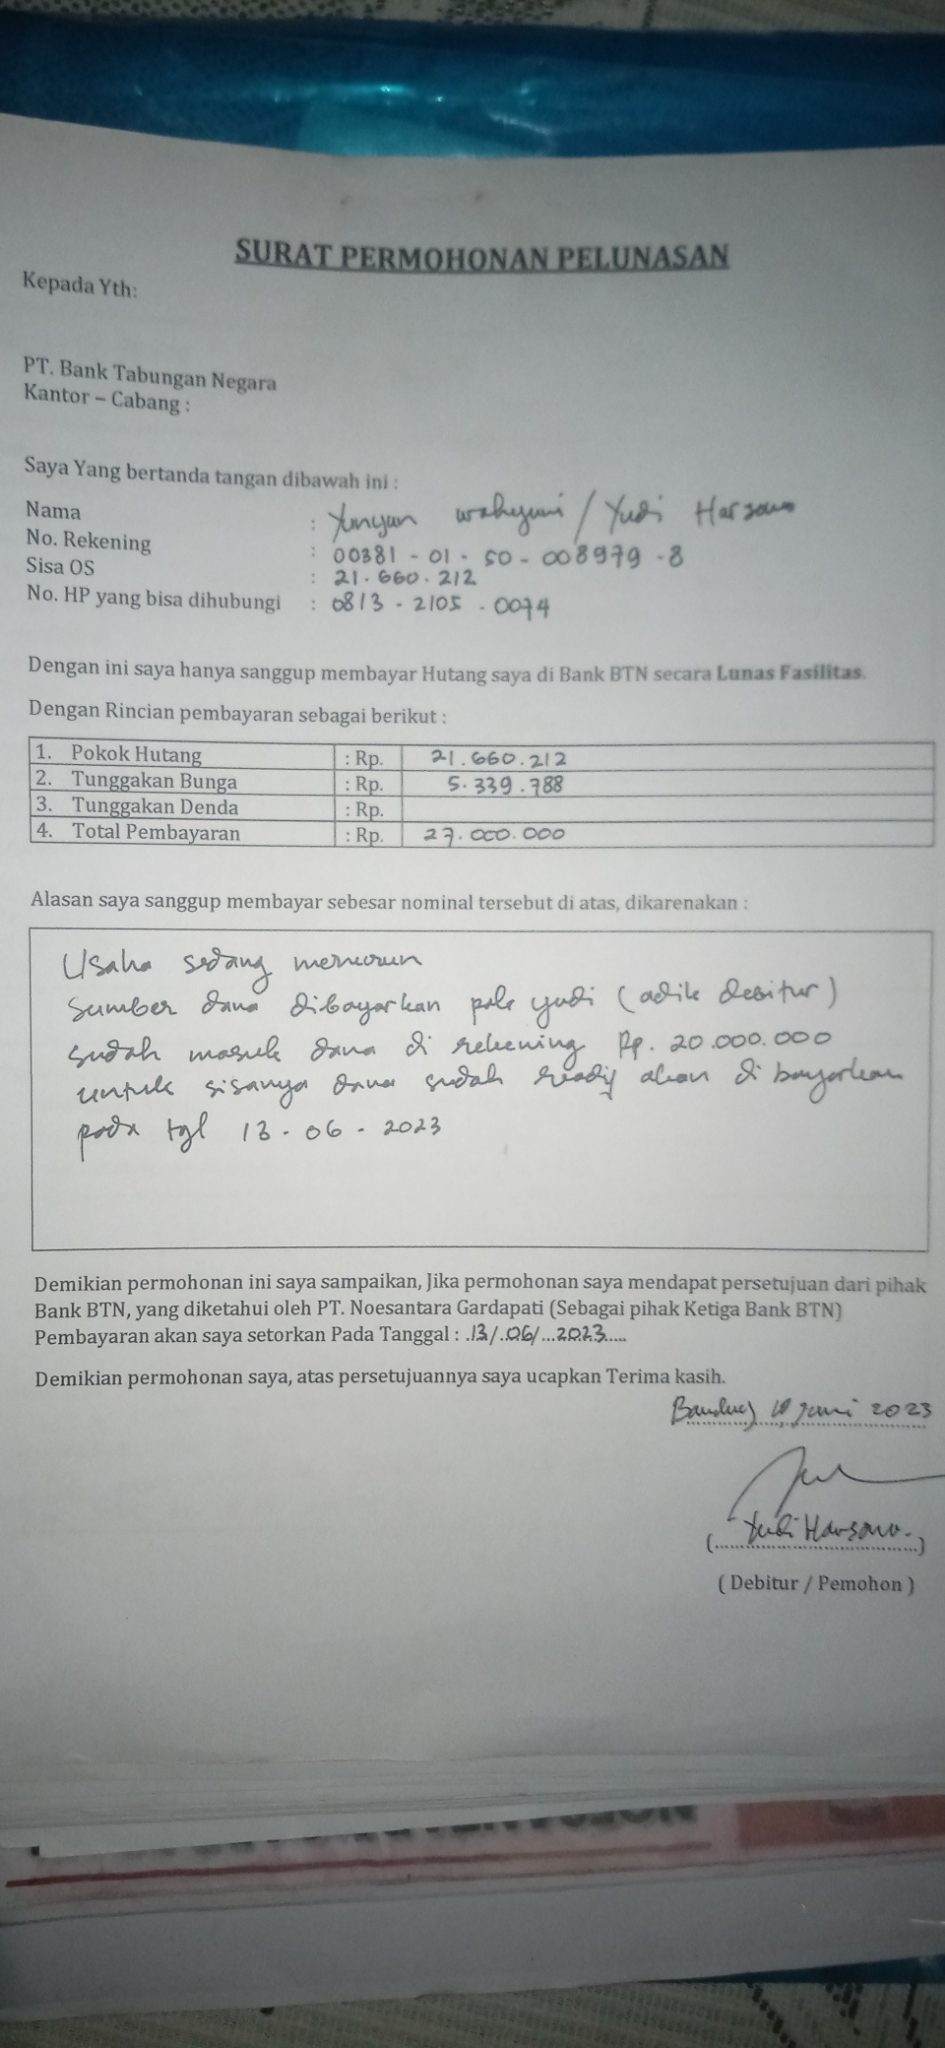 SURAT PERMOHONAN PELUNASAN
Kepada Yth:
PT. Bank Tabungan Negara
Kantor – Cabang :
Saya Yang bertanda tangan dibawah ini :
Nama : Yunyun wahyuni / Yudi Harsono
No. Rekening : 00381 - 01 - 50 - 008979 - 8
Sisa OS : 21.660.212
No. HP yang bisa dihubungi : 0813 - 2105 - 0074
Dengan ini saya hanya sanggup membayar Hutang saya di Bank BTN secara Lunas Fasilitas.
Dengan Rincian pembayaran sebagai berikut :
1. Pokok Hutang : Rp. 21.660.212
2. Tunggakan Bunga : Rp. 5.339.788
3. Tunggakan Denda : Rp.
4. Total Pembayaran : Rp. 27.000.000
Alasan saya sanggup membayar sebesar nominal tersebut di atas, dikarenakan :
Usaha sedang menurun
Sumber dana dibayarkan pak yudi (adik debitur)
sudah masuk dana di rekening Rp. 20.000.000
untuk sisanya dana sudah ready akan di bayarkan
pada tgl 13 - 06 - 2023
Demikian permohonan ini saya sampaikan, Jika permohonan saya mendapat persetujuan dari pihak
Bank BTN, yang diketahui oleh PT. Noesantara Gardapati (Sebagai pihak Ketiga Bank BTN)
Pembayaran akan saya setorkan Pada Tanggal : .13/.06/...2023.....
Demikian permohonan saya, atas persetujuannya saya ucapkan Terima kasih.
Bandung juni 2023
(Yudi Harsono.)
( Debitur / Pemohon )